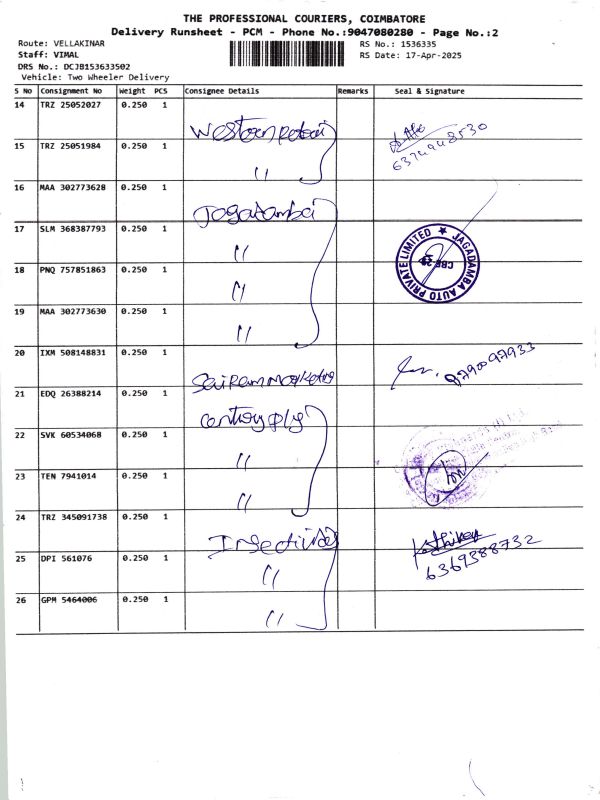 THE PROFESSIONAL COURIERS, COIMBATORE
Delivery Runsheet - PCM - Phone No.:9047080280 - Page No.:2
Route: VELLAKINAR
RS No.: 1536335
Staff: VIMAL
RS Date: 17-Apr-2025
DRS No.: DCJB153633502
Vehicle: Two Wheeler Delivery
S No Consignment No Weight PCS Consignee Details Remarks Seal & Signature
14 TRZ 25052027 0.250 1 Western
15 TRZ 25051984 0.250 1 " 6374948530
16 MAA 302773628 0.250 1 Jagadambai
17 SLM 368387793 0.250 1 " JAGADAMBA AUTO PRIVATE LIMITED ★
18 PNQ 757851863 0.250 1 " CBE
19 MAA 302773630 0.250 1 "
20 IXM 508148831 0.250 1 Sairam Marketing
21 EDQ 26388214 0.250 1 Century Ply
22 SVK 60534068 0.250 1 "
23 TEN 7941014 0.250 1 "
24 TRZ 345091738 0.250 1
25 DPI 561076 0.250 1 " 6369388732
26 GPM 5464006 0.250 1 "